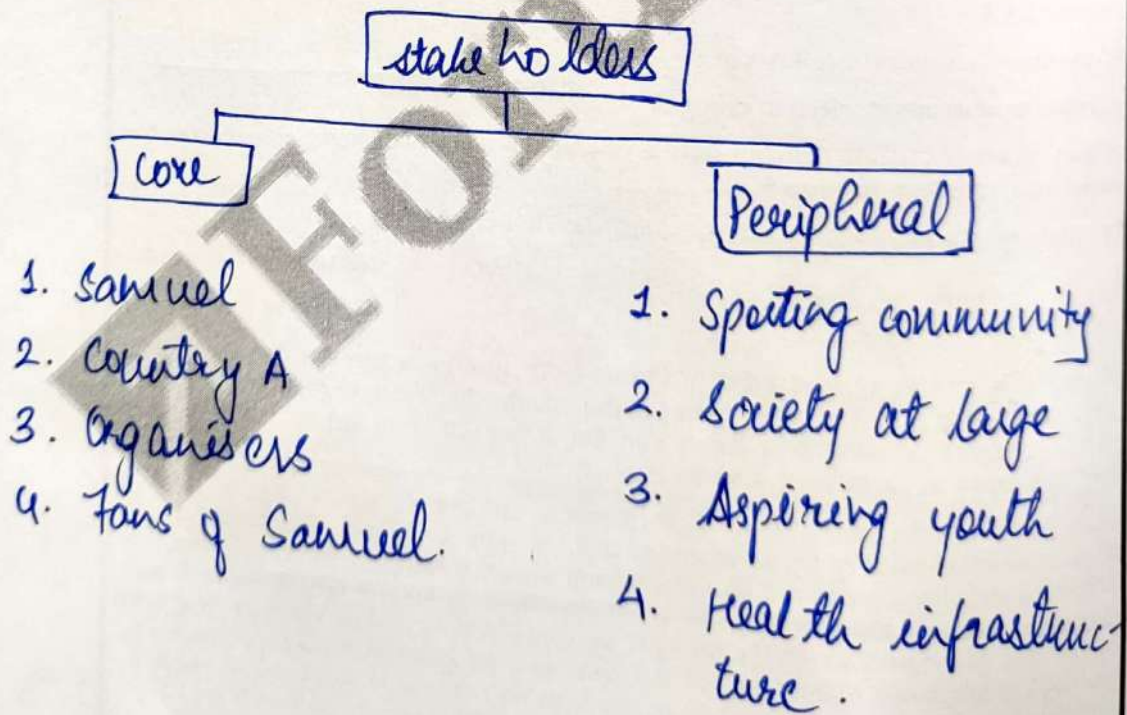 stakeholders
core
Peripheral
1. Samuel
2. Country A
3. Organisers
4. Fans of Samuel.
1. Sporting community
2. Society at large
3. Aspiring youth
4. Health infrastruc-
ture.
For